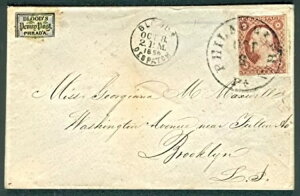 BLOOD'S
Penny Post
PHILAD'A.
BLOOD'S
OCT 8
2 P.M.
1856
DISPATCH
PHILADA
PA
Miss Georgiana M. Maxwell
Washington Avenue near Fulton Av
Brooklyn
L. I.